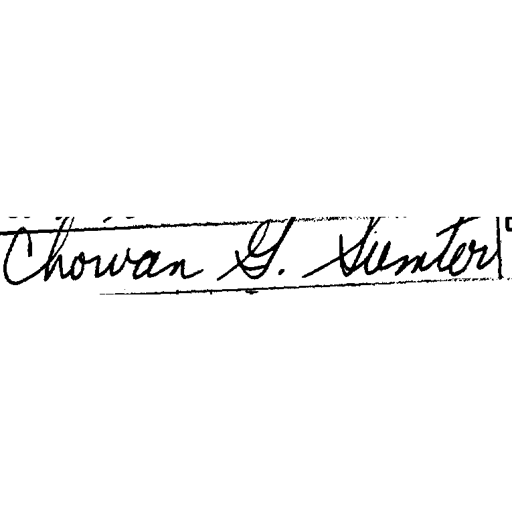 Chowan G. Sumter